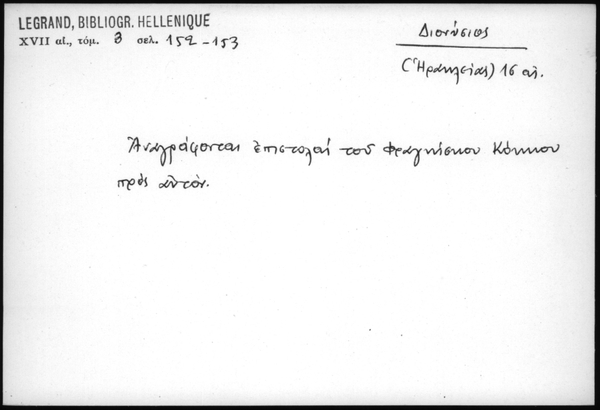 LEGRAND, BIBLIOGR. HELLENIQUE
XVII αἰ., τόμ. 3 σελ. 152-153
Διονύσιος
(Ἡρακλείας) 16 αἰ.
Ἀναγράφονται ἐπιστολαί τοῦ Φραγκίσκου Κόκκου
πρός αὐτόν.